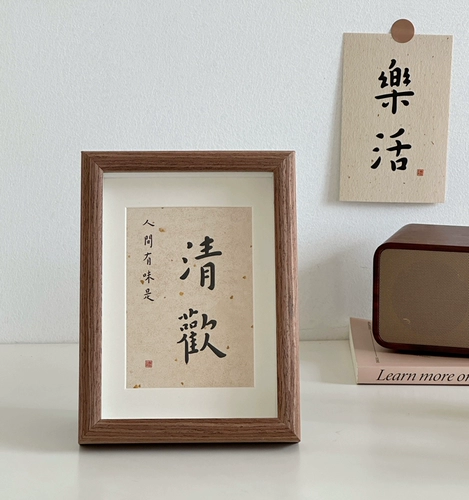 人間有味是
清歡
樂活
Learn more or